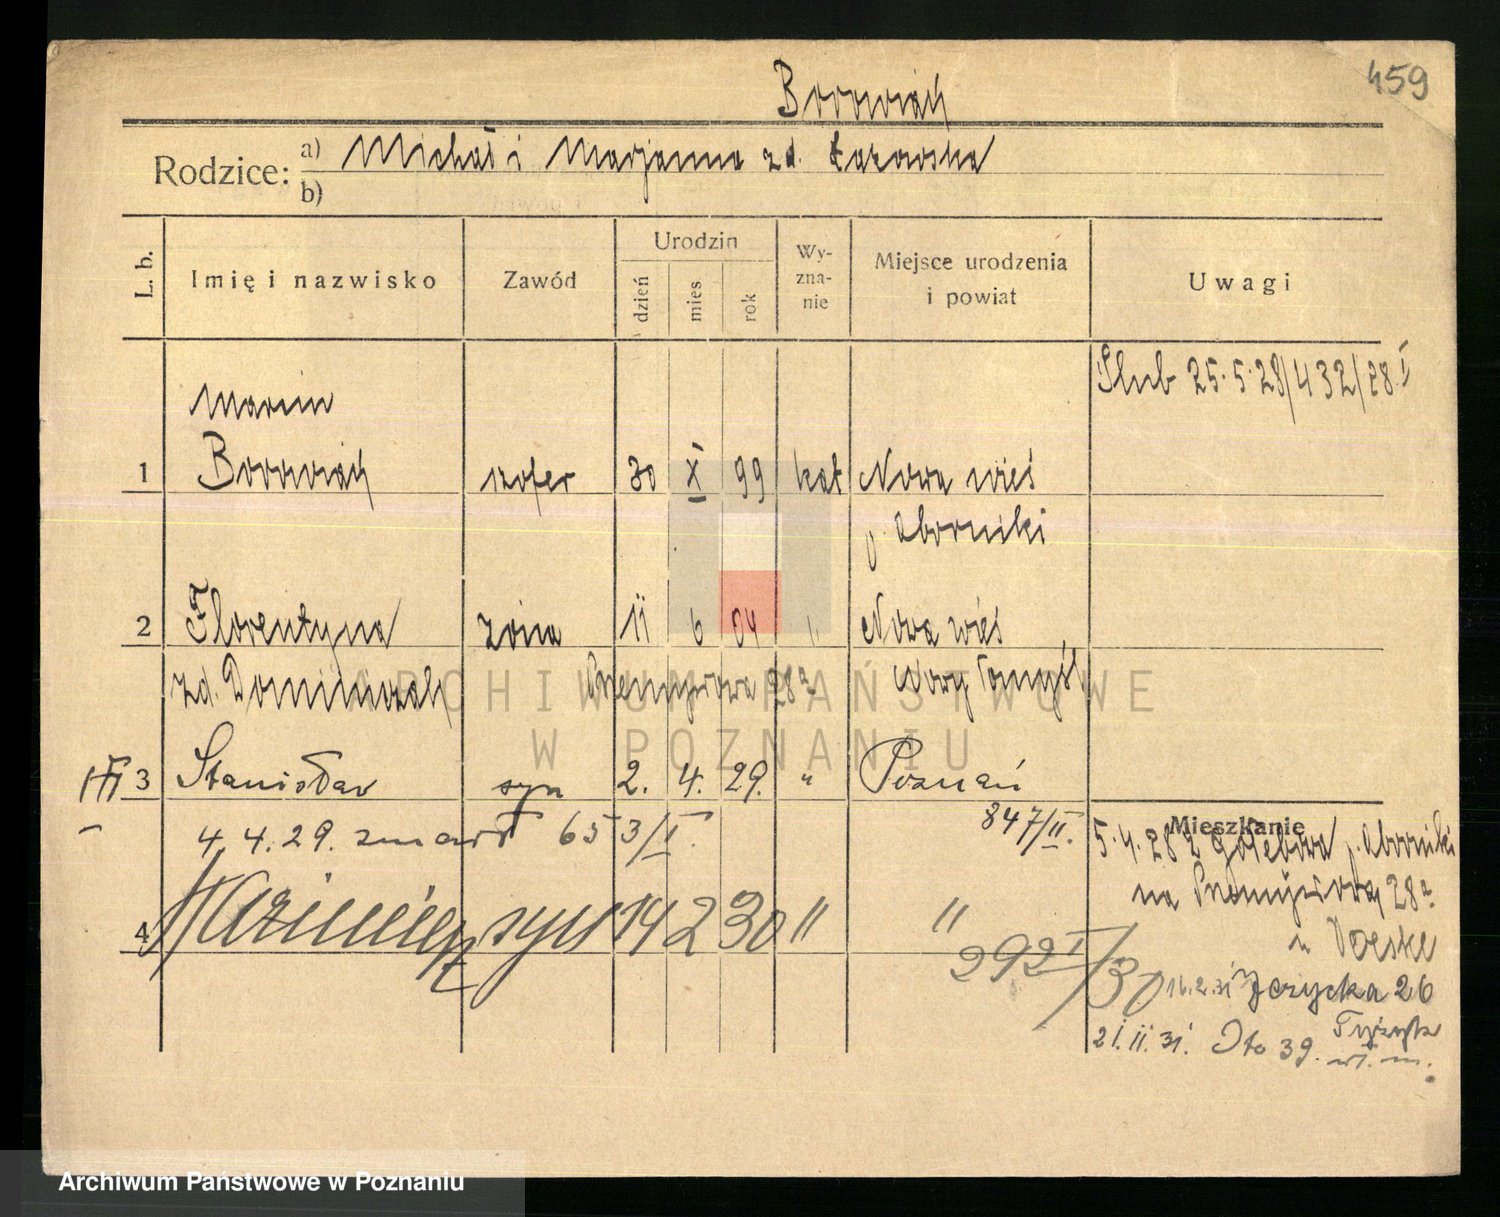 459
Borowiak
Rodzice: a) Michał i Marjanna zd. Łazowska
b)
L. b. Imię i nazwisko Zawód Urodzin dzień mies rok Wyznanie Miejsce urodzenia i powiat Uwagi
Ślub 25.5.28/432/28 I
Marcin
1 Borowiak szofer 30 X 99 kat Nowa wieś
p. Oborniki
2 Florentyna żona 11 6 04 " Nowa wieś
zd. Dominiczak Przemysłowa 28a Nowy Tomyśl
ARCHIWUM PAŃSTWOWE
W POZNANIU
3 Stanisław syn 2. 4. 29. " Poznań
4.4.29. zmarł 653/I. 847/II.
Mieszkanie
5.4.28 z Gołębowa p. Oborniki
na Przemysłową 28a
4 Kazimierz syn 14 2 30 " "
u Voeske
292 I/30
16.2.31 Jeżycka 26
21.II.31. 39.
Archiwum Państwowe w Poznaniu